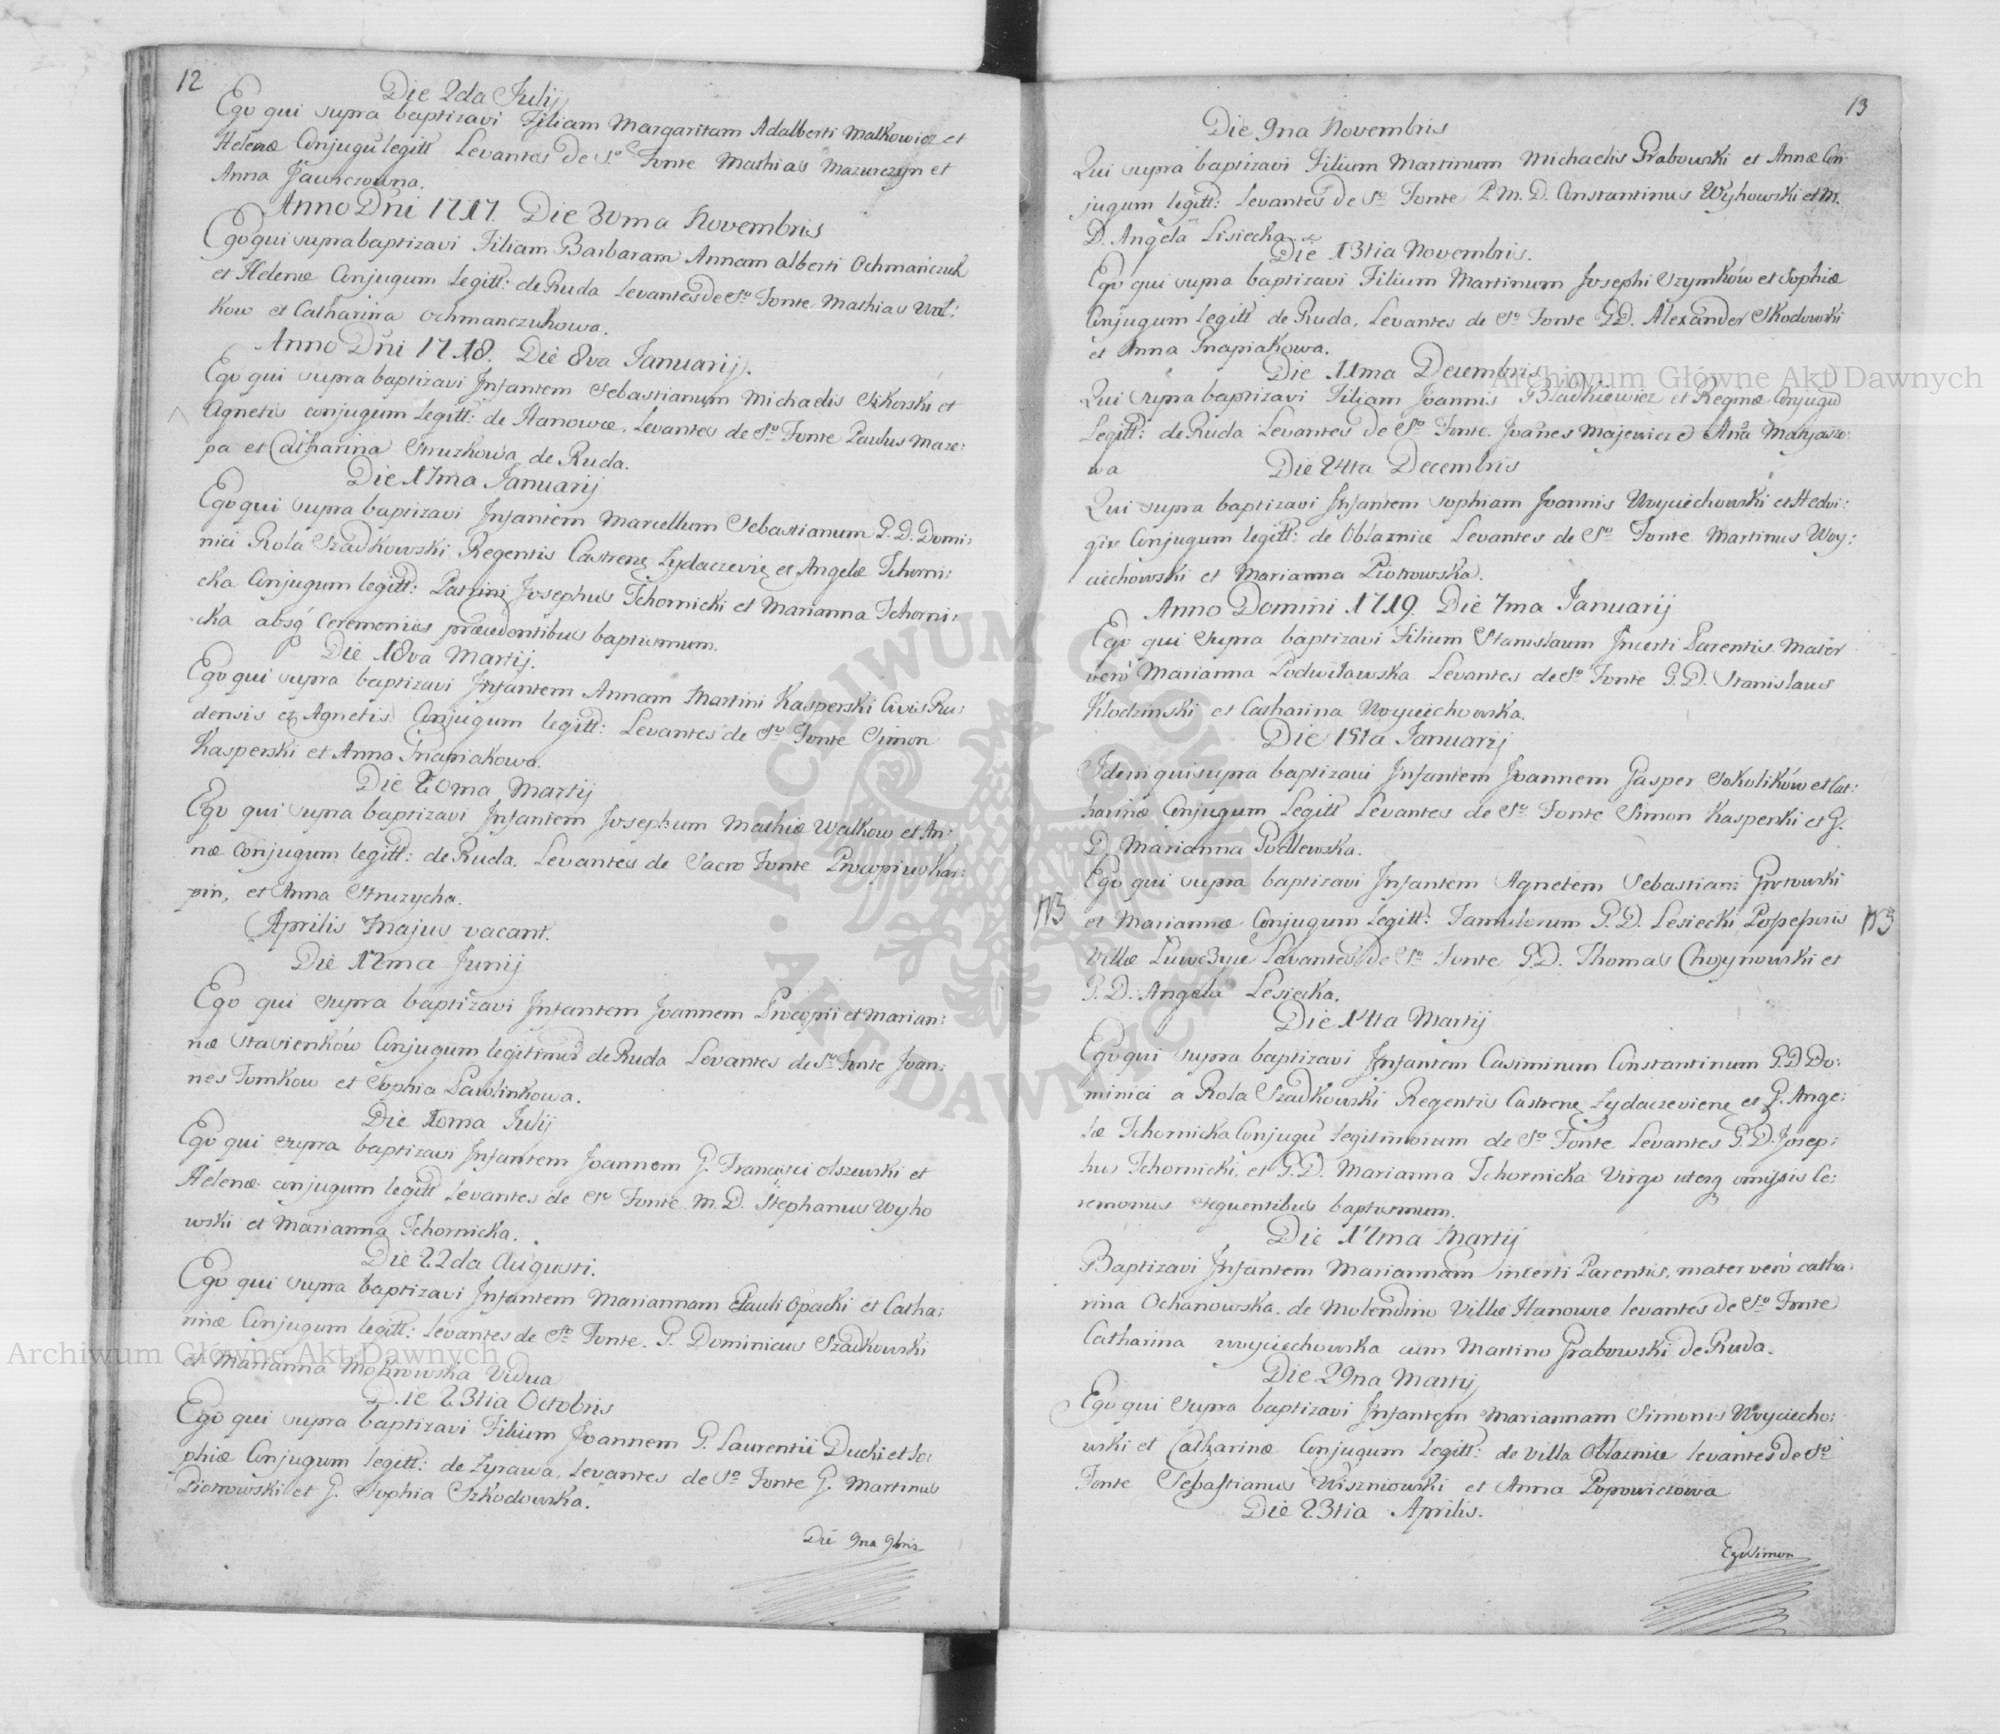 12
Die 2da Julij
Ego qui supra baptizavi Filiam Margaritam Adalberti Malkowicz et
Helenæ Conjugũ legitt Levantes de So Fonte Mathias Mazurczyn et
Anna
Anno Dni 1717. Die 30ma Novembris
Ego qui supra baptizavi Filiam Barbaram Annam Alberti Ochmańczuk
et Helenæ Conjugum Legitt: de Ruda Levantes de So Fonte Mathias
kow et Catharina Ochmanczukowa.
Anno Dñi 1718. Die 8va Januarij.
Ego qui supra baptizavi Infantem Sebastianum Michaelis Sikorski et
Agnetis conjugum Legitt: de Hanowce. Levantes de So Fonte Paulus Maze:
pa et Catharina Struzkowa de Ruda.
Die 17ma Januarij
Ego qui supra baptizavi Infantem Marcellum Sebastianum G. D. Domi:
nici Rola Szadkowski Regentis Castrenę Zydaczevię et Angelæ Tchorni:
cka Conjugum legitt: Patrini Josephus Tchornicki et Marianna Tchorni:
cka absq Ceremoniis præcedentibus baptismum.
Die 18va Martij.
Ego qui supra baptizavi Infantem Annam Martini Kasperski Civis Ru:
densis et Agnetis Conjugum legitt: Levantes de So Fonte Simon
Kasperski et Anna Gnapiakowa.
Die 20ma Martij
Ego qui supra baptizavi Infantem Josephum Mathiæ Walkow et An:
næ Conjugum legitt: de Ruda. Levantes de Sacro Fonte Procopius Kar:
pin, et Anna Struzycha.
Aprilis Majus vacant.
Die 12ma Junij
Ego qui supra baptizavi Infantem Joannem Procopii et Marian:
næ Stasienków Conjugum legitimor de Ruda Levantes de So Fonte Joan:
nes Tomkow et Sophia Pawlinkowa.
Die 10ma Julij
Ego qui supra baptizavi Infantem Joannem G. Francisci Olszewski et
Helenæ conjugum legitt Levantes de So Fonte M. D. Stephanus Wyho
wski et Marianna Tchornicka.
Die 22da Augusti.
Ego qui supra baptizavi Infantem Mariannam Pauli Opacki et Catha:
rinæ Conjugum legitt: levantes de So Fonte. G. Dominicus Szadkowski
et Marianna Mokrowska Vidua
Die 23tia Octobris
Ego qui supra baptizavi Filium Joannem G. Laurentii Ducki et So:
phiæ Conjugum legitt: de Zyrawa, Levantes de So Fonte G. Martinus
Piotrowski et G. Sophia Szkodowska.
Die 9na 9bris
13
Die 9na Novembris
Qui supra baptizavi Filium Martinum Michaelis Grabowski et Annæ Con:
jugum legitt: Levantes de So Fonte P. M. D. Constantinus Wyhowski et M.
D. Angela Lisiecka
Die 13tia Novembris.
Ego qui supra baptizavi Filium Martinum Josephi Szymków et Sophiæ
Conjugum Legitt de Ruda. Levantes de So Fonte GD. Alexander Skodowski
et Anna Gnapiakowa.
Die 11ma Decembris
Qui supra baptizavi Filiam Joannis Bladkiewicz et Reginæ Conjugũ
Legitt: de Ruda Levantes de So Fonte. Joañes Majewicz et Aña Matyaszo:
wa
Die 24ta Decembris
Qui supra baptizavi Infantem Sophiam Joannis Woyciechowski et Hedvi:
gis Conjugum legitt: de Oblaznice Levantes de So Fonte Martinus Woy:
ciechowski et Marianna Piotrowska.
Anno Domini 1719. Die 7ma Januarij
Ego qui supra baptizavi Filium Stanislaum Incerti Parentis. Mater
verò Marianna Podwiławska Levantes de So Fonte G. D. Stanislaus
Klodzinski et Catharina Woyciechowska.
Die 15ta Januarij
Idem qui supra baptizavi Infantem Joannem Gasper Sokolików et Cat:
harinæ Conjugum Legitt Levantes de So Fonte Simon Kasperski et G.
D. Marianna Podlewska.
Ego qui supra baptizavi Infantem Agnetem Sebastiani Grotowski
NB et Mariannæ Conjugum Legitt: Famulorum G. D. Lesiecki Possessoris NB
Villæ Levantes de So Fonte G.D. Thomas Choynowski et
G. D. Angela Lesiecka.
Die 14ta Martij
Ego qui supra baptizavi Infantem Casimirum Constantinum G. D Do:
minici a Rola Szadkowski Regentis Castrenę Zydaczevienę et G. Ange:
læ Tchornicka Conjugũ Legitimorum de So Fonte Levantes G.D. Josep:
hus Tchornicki, et G.D. Marianna Tchornicka Virgo uterq omissis Ce:
remonus sequentibus baptismum.
Die 17ma Martij
Baptizavi Infantem Mariannam incerti Parentis, mater verò Catha:
rina Ochanowska. de Molendino Villæ Hanowce levantes de So Fonte
Catharina woyciechowska cum Martino Grabowski de Ruda.
Die 29na Martij
Ego qui supra baptizavi Infantem Mariannam Simonis Woyciecho:
wski et Catharinæ Conjugum Legitt: de Villa Oblaznice levantes de So
Fonte Sebastianus Wiszniowski et Anna Popowiczowa
Die 23tia Aprilis.
Ego Simon
Archiwum Główne Akt Dawnych
Archiwum Główne Akt Dawnych
ARCHIWUM GŁÓWNE · AKT DAWNYCH ·